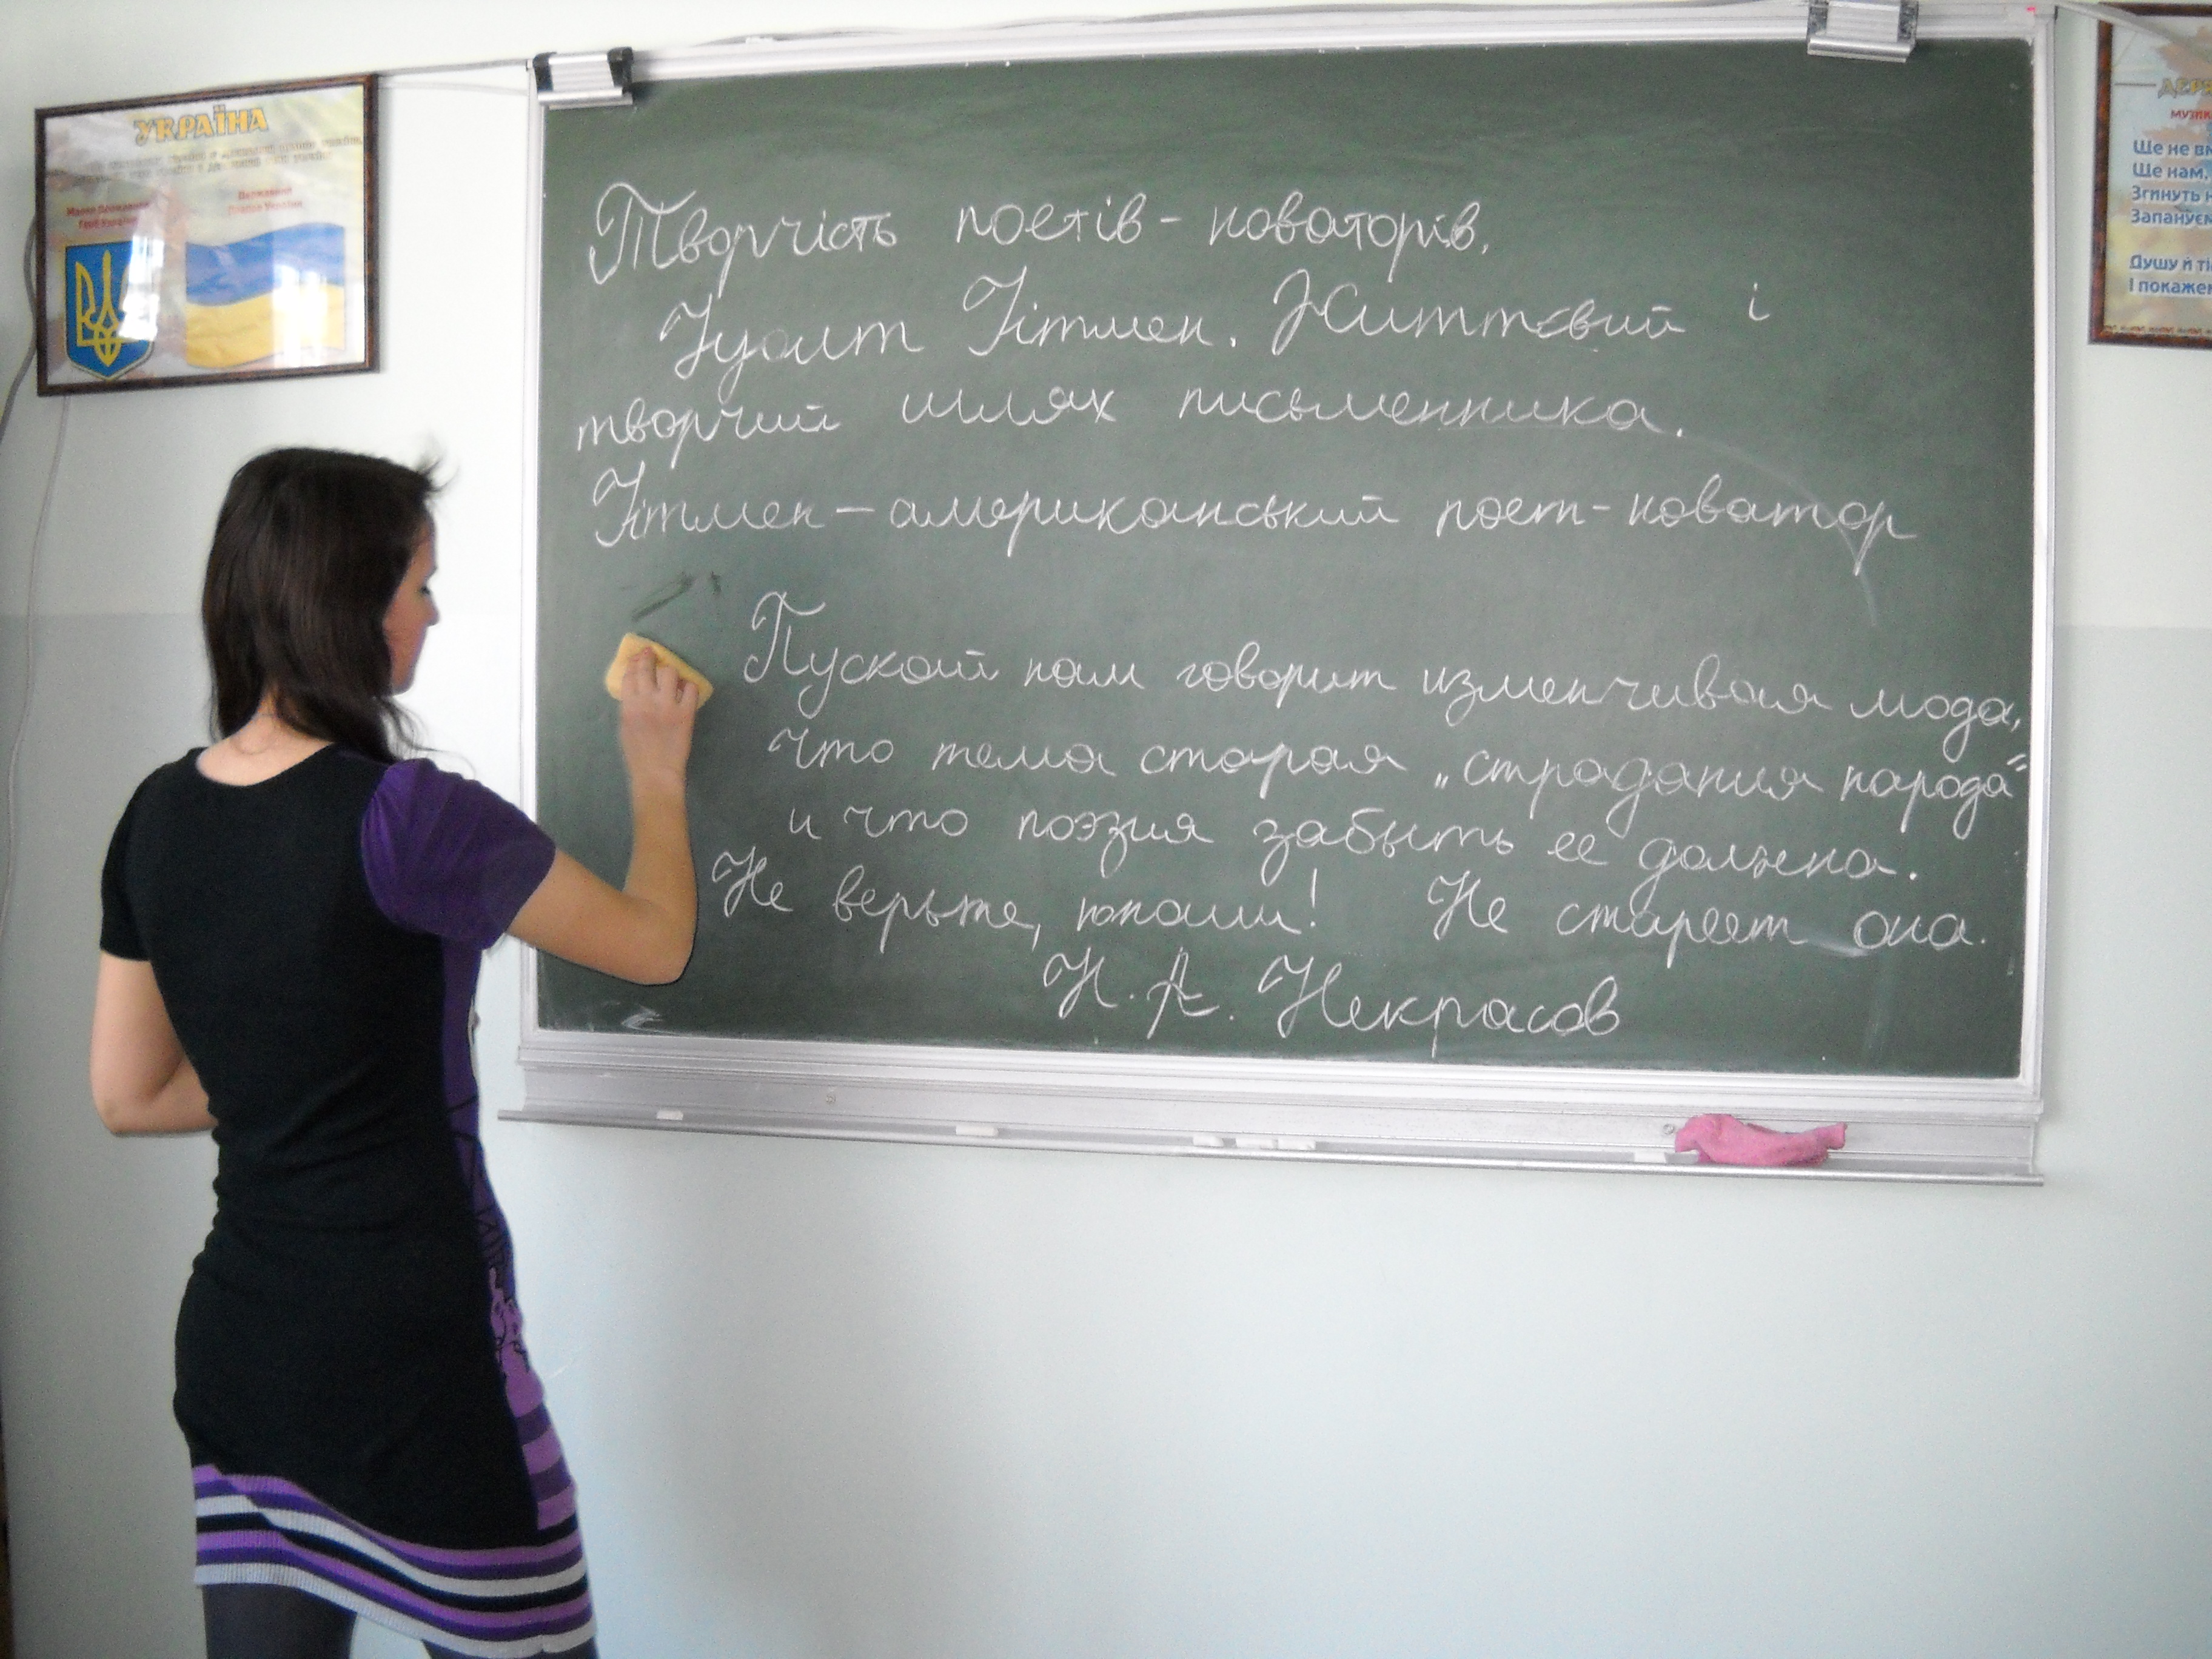 УКРАЇНА
Творчість поетів-новаторів.
Уолт Уітмен. Життєвий і
творчий шлях письменника.
Уітмен – американський поет-новатор
Пускай нам говорит изменчивая мода,
что тема старая „страдания народа"
и что поэзия забыть ее должна.
Не верьте, юноши! Не стареет она.
Н. А. Некрасов
Ще не
Ще нам,
Згинуть
Запануєм
Душу й
І покажем